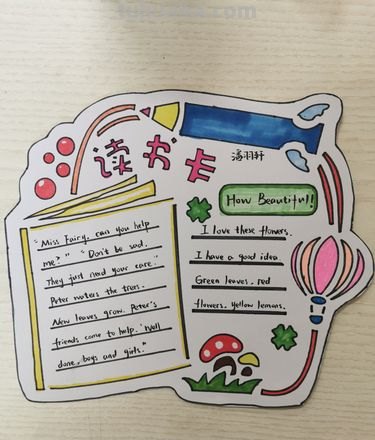 读书卡
潘羽轩
How Beautiful!
"Miss Fairy, can you help
me?" "Don't be sad.
They just need your care."
Peter waters the trees.
New leaves grow. Peter's
friends come to help. "Well
done, boys and girls."
I love these flowers.
I have a good idea
Green leaves. red
flowers. Yellow lemons.